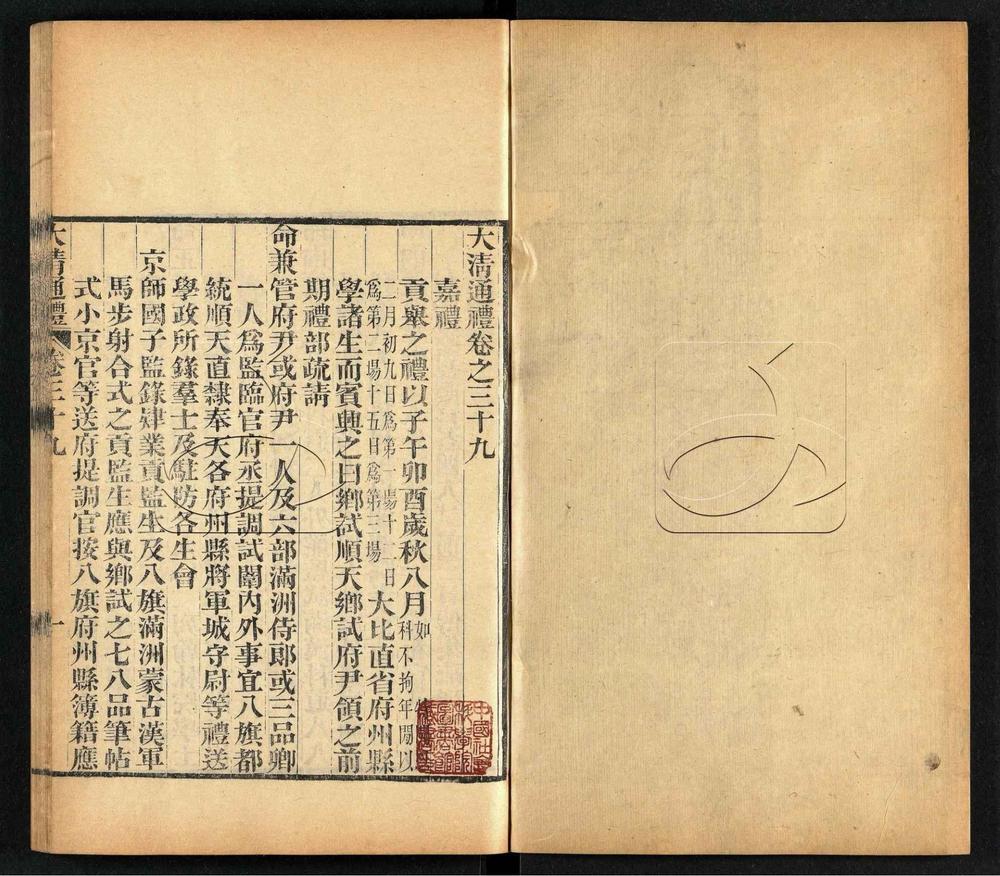 大淸通禮卷之三十九
嘉禮
貢舉之禮以子午卯酉歲秋八月如科不拘年閒以
二月初九日爲第一場十二日爲第二場十五日爲第三場大比直省府州縣
學諸生而賓興之曰鄕試順天鄕試府尹領之前
期禮部疏請
命兼管府尹或府尹一人及六部滿洲侍郞或三品卿
一人爲監臨官府丞提調試闈內外事宜八旗都
統順天直隸奉天各府州縣將軍城守尉等禮送
學政所錄羣士及駐防各生會
京師國子監錄肄業貢監生及八旗滿洲蒙古漢軍
馬步射合式之貢監生應與鄕試之七八品筆帖
式小京官等送府提調官按八旗府州縣簿籍應
大淸通禮 卷三十九 一